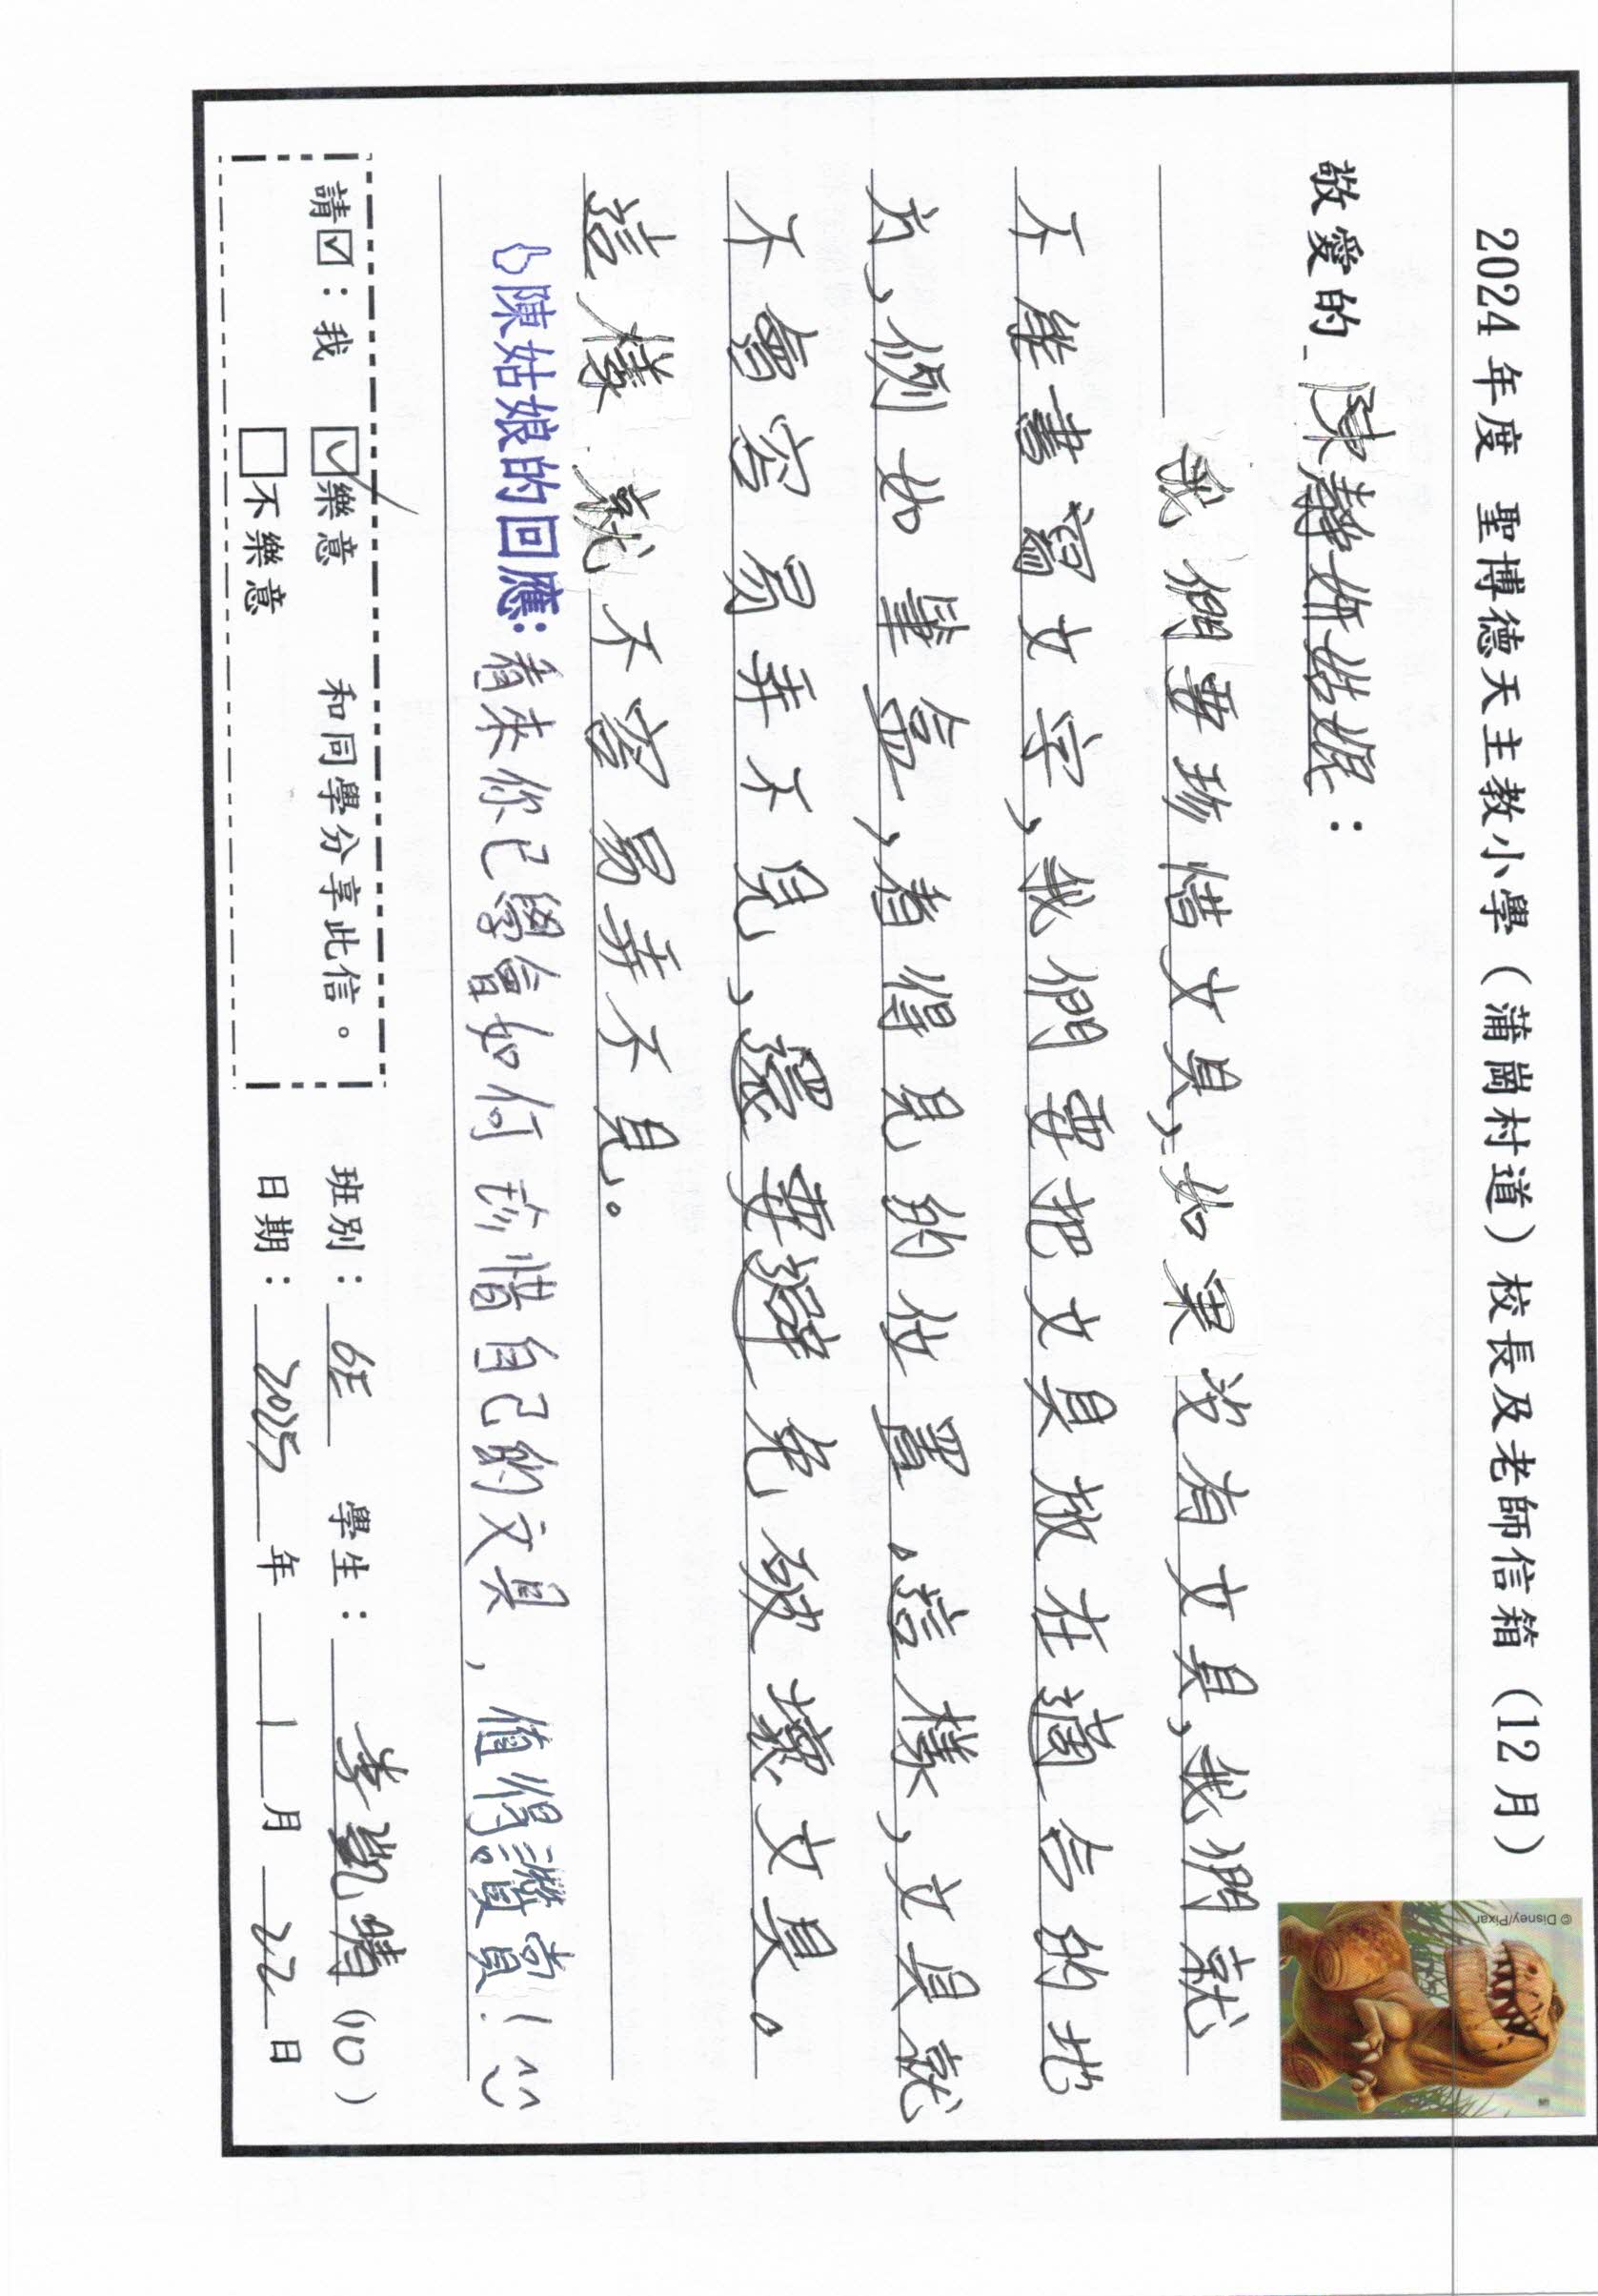 2024 年度 聖博德天主教小學（蒲崗村道）校長及老師信箱（12 月）
© Disney/Pixar
敬愛的 陳靜妍姑娘：
我們要珍惜文具，如果沒有文具，我們就
不能書寫文字，我們要把文具放在適合的地
方，例如筆盒，看得見的位置。這樣，文具就
不會容易弄不見，還要避免破壞文具。
這樣就不容易弄不見。
陳姑娘的回應：看來你已學會如何珍惜自己的文具，值得讚賞！
請☑：我 ☑樂意 和同學分享此信。 班別：6E 學生：李凱晴（10）
☐不樂意 日期：2025年1月22日